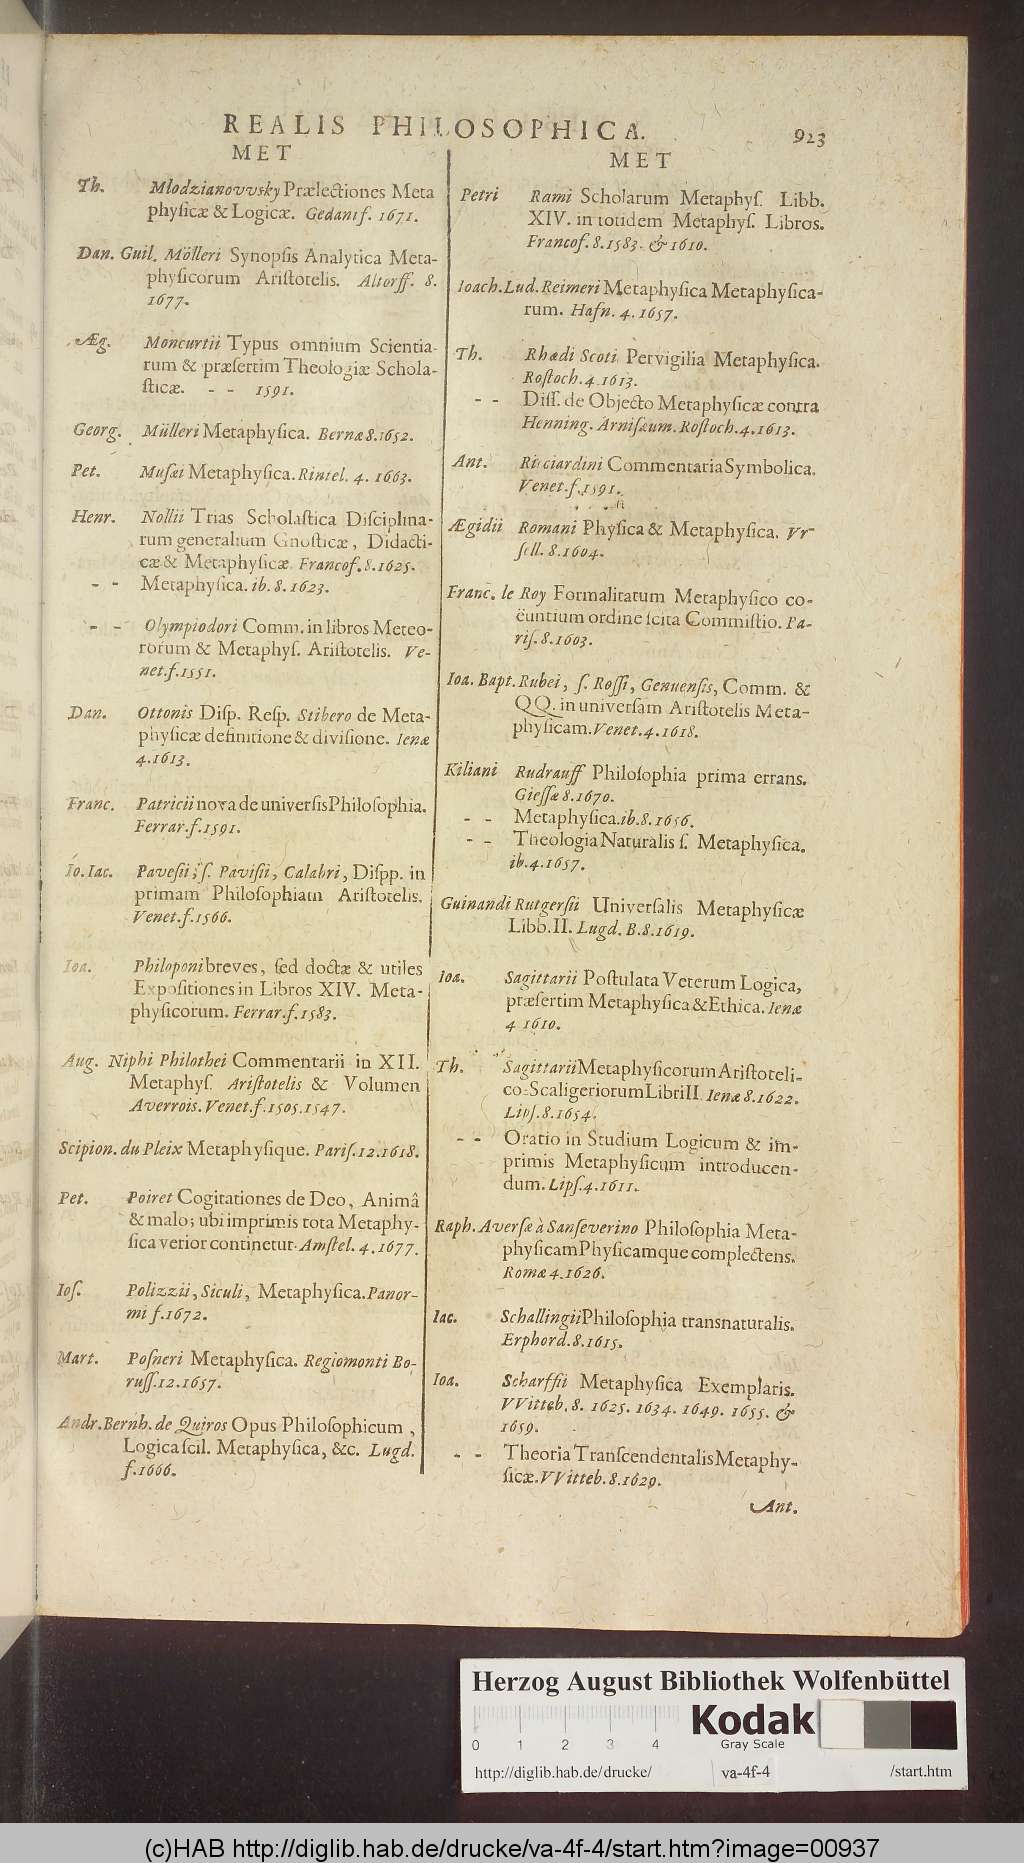 REALIS PHILOSOPHICA. 923
MET
Th. Młodzianovvsky Prælectiones Meta
physicæ & Logicæ. Gedani f. 1671.
Dan. Guil. Mölleri Synopsis Analytica Meta-
physicorum Aristotelis. Altorff. 8.
1677.
Æg. Moncurtii Typus omnium Scientia-
rum & præsertim Theologiæ Schola-
sticæ. - - 1591.
Georg. Mülleri Metaphysica. Bernæ 8.1652.
Pet. Musæi Metaphysica. Rintel. 4. 1663.
Henr. Nollii Trias Scholastica Disciplina-
rum generalium Gnosticæ, Didacti-
cæ & Metaphysicæ. Francof. 8.1625.
- - Metaphysica. ib. 8. 1623.
- - Olympiodori Comm. in libros Meteo-
rorum & Metaphys. Aristotelis. Ve-
net. f. 1551.
Dan. Ottonis Disp. Resp. Stibero de Meta-
physicæ definitione & divisione. Ienæ
4.1613.
Franc. Patricii nova de universis Philosophia.
Ferrar. f. 1591.
Io. Iac. Pavesii, s. Pavisii, Calabri, Dispp. in
primam Philosophiam Aristotelis.
Venet. f. 1566.
Ioa. Philoponi breves, sed doctæ & utiles
Expositiones in Libros XIV. Meta-
physicorum. Ferrar. f. 1583.
Aug. Niphi Philothei Commentarii in XII.
Metaphys. Aristotelis & Volumen
Averrois. Venet. f. 1505. 1547.
Scipion. du Pleix Metaphysique. Paris. 12.1618.
Pet. Poiret Cogitationes de Deo, Animâ
& malo; ubi imprimis tota Metaphy-
sica verior continetur. Amstel. 4. 1677.
Ios. Polizzii, Siculi, Metaphysica. Panor-
mi f. 1672.
Mart. Posneri Metaphysica. Regiomonti Bo-
russ. 12. 1657.
Andr. Bernh. de Quiros Opus Philosophicum,
Logica scil. Metaphysica, &c. Lugd.
f. 1666.
MET
Petri Rami Scholarum Metaphys. Libb.
XIV. in totidem Metaphys. Libros.
Francof. 8. 1583. & 1610.
Ioach. Lud. Reimeri Metaphysica Metaphysica-
rum. Hafn. 4. 1657.
Th. Rhædi Scoti Pervigilia Metaphysica.
Rostoch. 4. 1613.
- - Diss. de Objecto Metaphysicæ contra
Henning. Arnisæum. Rostoch. 4. 1613.
Ant. Ricciardini Commentaria Symbolica.
Venet. f. 1591.
Ægidii Romani Physica & Metaphysica. Vr-
sell. 8. 1604.
Franc. le Roy Formalitatum Metaphysico co-
ëuntium ordine scita Commistio. Pa-
ris. 8. 1603.
Ioa. Bapt. Rubei, s. Rossi, Genuensis, Comm. &
QQ. in universam Aristotelis Meta-
physicam. Venet. 4. 1618.
Kiliani Rudrauff Philosophia prima errans.
Giessæ 8. 1670.
- - Metaphysica. ib. 8. 1656.
- - Theologia Naturalis s. Metaphysica.
ib. 4. 1657.
Guinandi Rutgersii Universalis Metaphysicæ
Libb. II. Lugd. B. 8. 1619.
Ioa. Sagittarii Postulata Veterum Logica,
præsertim Metaphysica & Ethica. Ienæ
4 1610.
Th. Sagittarii Metaphysicorum Aristoteli-
co-Scaligeriorum Libri II. Ienæ 8. 1622.
Lips. 8. 1654.
- - Oratio in Studium Logicum & im-
primis Metaphysicum introducen-
dum. Lips. 4. 1611.
Raph. Aversæ à Sanseverino Philosophia Meta-
physicam Physicamque complectens.
Romæ 4. 1626.
Iac. Schallingii Philosophia transnaturalis.
Erphord. 8. 1615.
Ioa. Scharffii Metaphysica Exemplaris.
VVitteb. 8. 1625. 1634. 1649. 1655. &
1659.
- - Theoria Transcendentalis Metaphy-
sicæ. VVitteb. 8. 1629.
Ant.
Herzog August Bibliothek Wolfenbüttel
Kodak
0 1 2 3 4
Gray Scale
http://diglib.hab.de/drucke/ va-4f-4 /start.htm
(c)HAB http://diglib.hab.de/drucke/va-4f-4/start.htm?image=00937